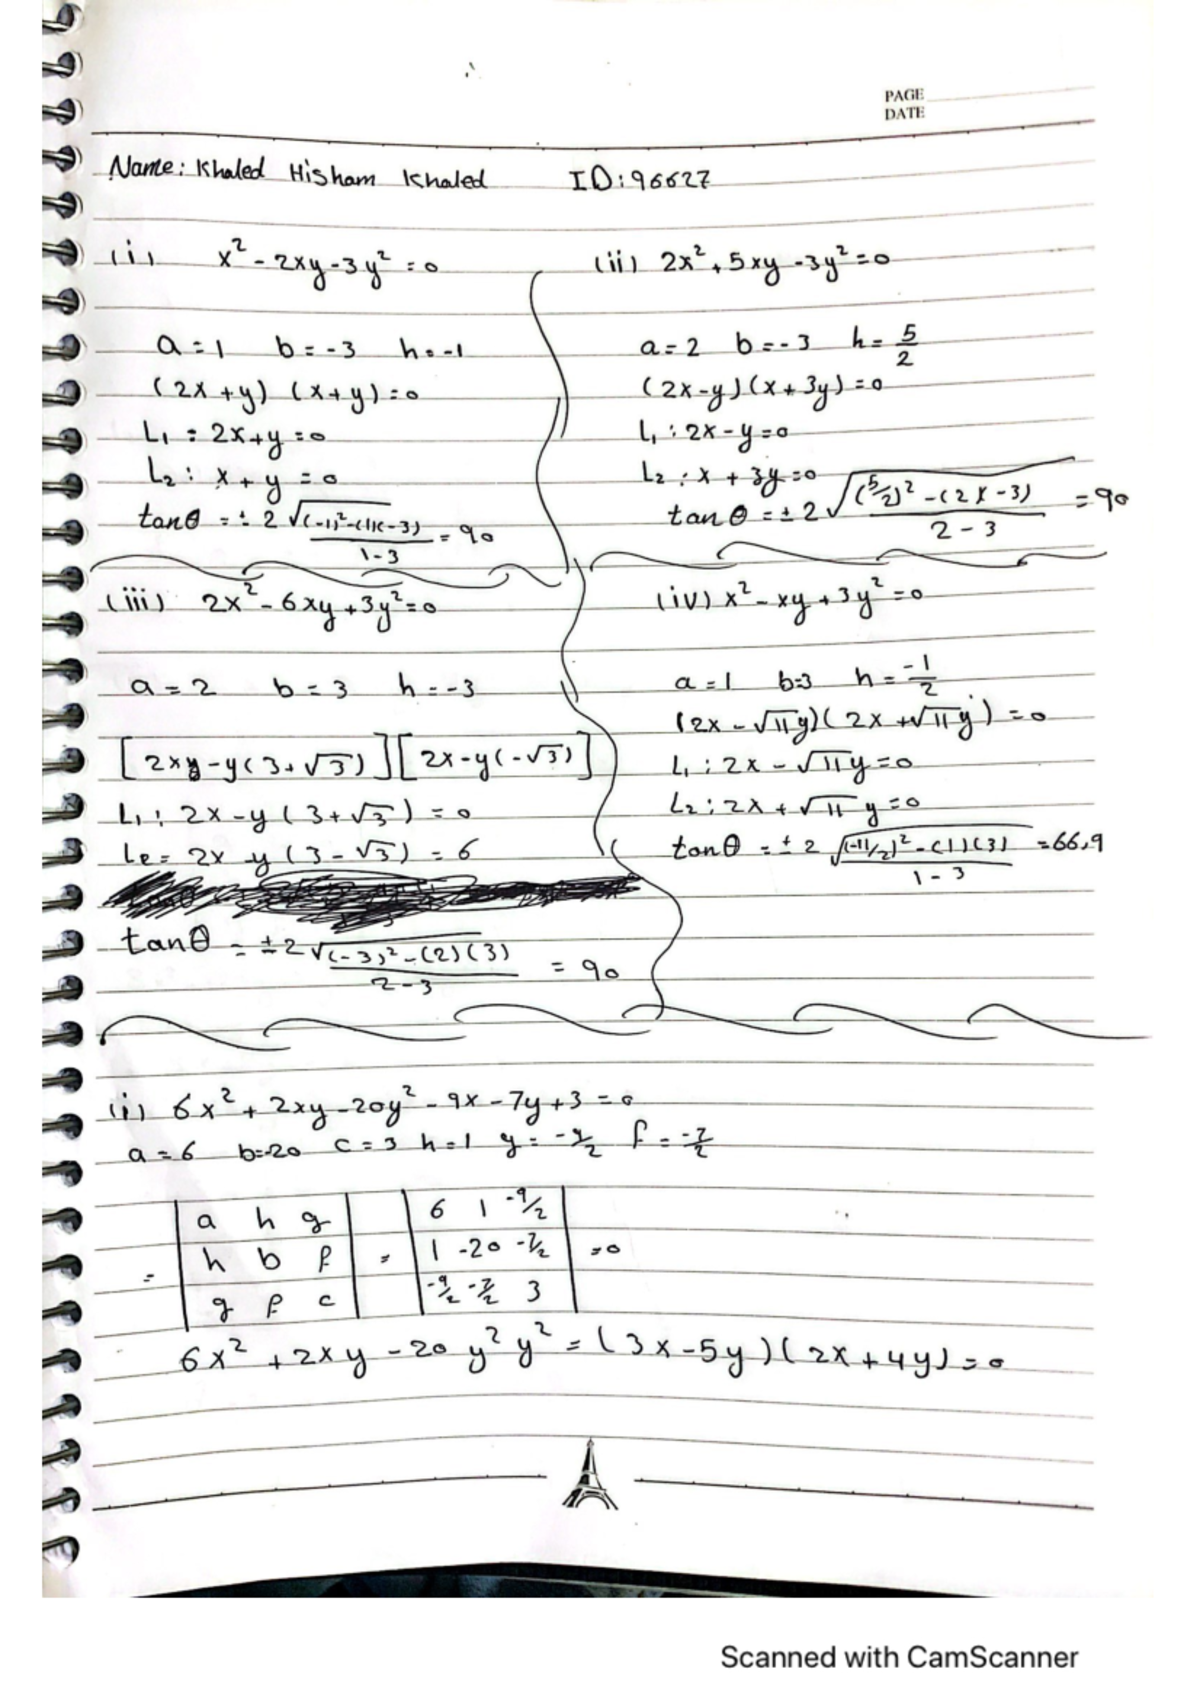 PAGE
DATE
Name: Khaled Hisham Khaled ID: 96627
(i) x² - 2xy - 3y² = 0
a = 1 b = -3 h = -1
(2x + y) (x + y) = 0
L₁ : 2x + y = 0
L₂ : x + y = 0
tanθ = ± 2 √((-1)² - (1)(-3)) / (1 - 3) = 90
(ii) 2x² + 5xy - 3y² = 0
a = 2 b = -3 h = 5/2
(2x - y)(x + 3y) = 0
L₁ : 2x - y = 0
L₂ : x + 3y = 0
tanθ = ± 2 √((5/2)² - (2)(-3)) / (2 - 3) = 90
(iii) 2x² - 6xy + 3y² = 0
a = 2 b = 3 h = -3
[2xy - y(3 + √3)][2x - y(-√3)]
L₁ : 2x - y (3 + √3) = 0
Le = 2x - y (3 - √3) = 6
tanθ = ± 2 √((-3)² - (2)(3)) / (2 - 3) = 90
(iv) x² - xy + 3y² = 0
a = 1 b = 3 h = -1/2
(2x - √11 y)(2x + √11 y) = 0
L₁ : 2x - √11 y = 0
L₂ : 2x + √11 y = 0
tanθ = ± 2 √((-11/2)² - (1)(3)) / (1 - 3) = 66,9
(i) 6x² + 2xy - 20y² - 9x - 7y + 3 = 0
a = 6 b = -20 c = 3 h = 1 g = -9/2 f = -7/2
a h g 6 1 -9/2
= h b f = 1 -20 -7/2 = 0
g f c -9/2 -7/2 3
6x² + 2xy - 20 y² y² = (3x - 5y)(2x + 4y) = 0
Scanned with CamScanner